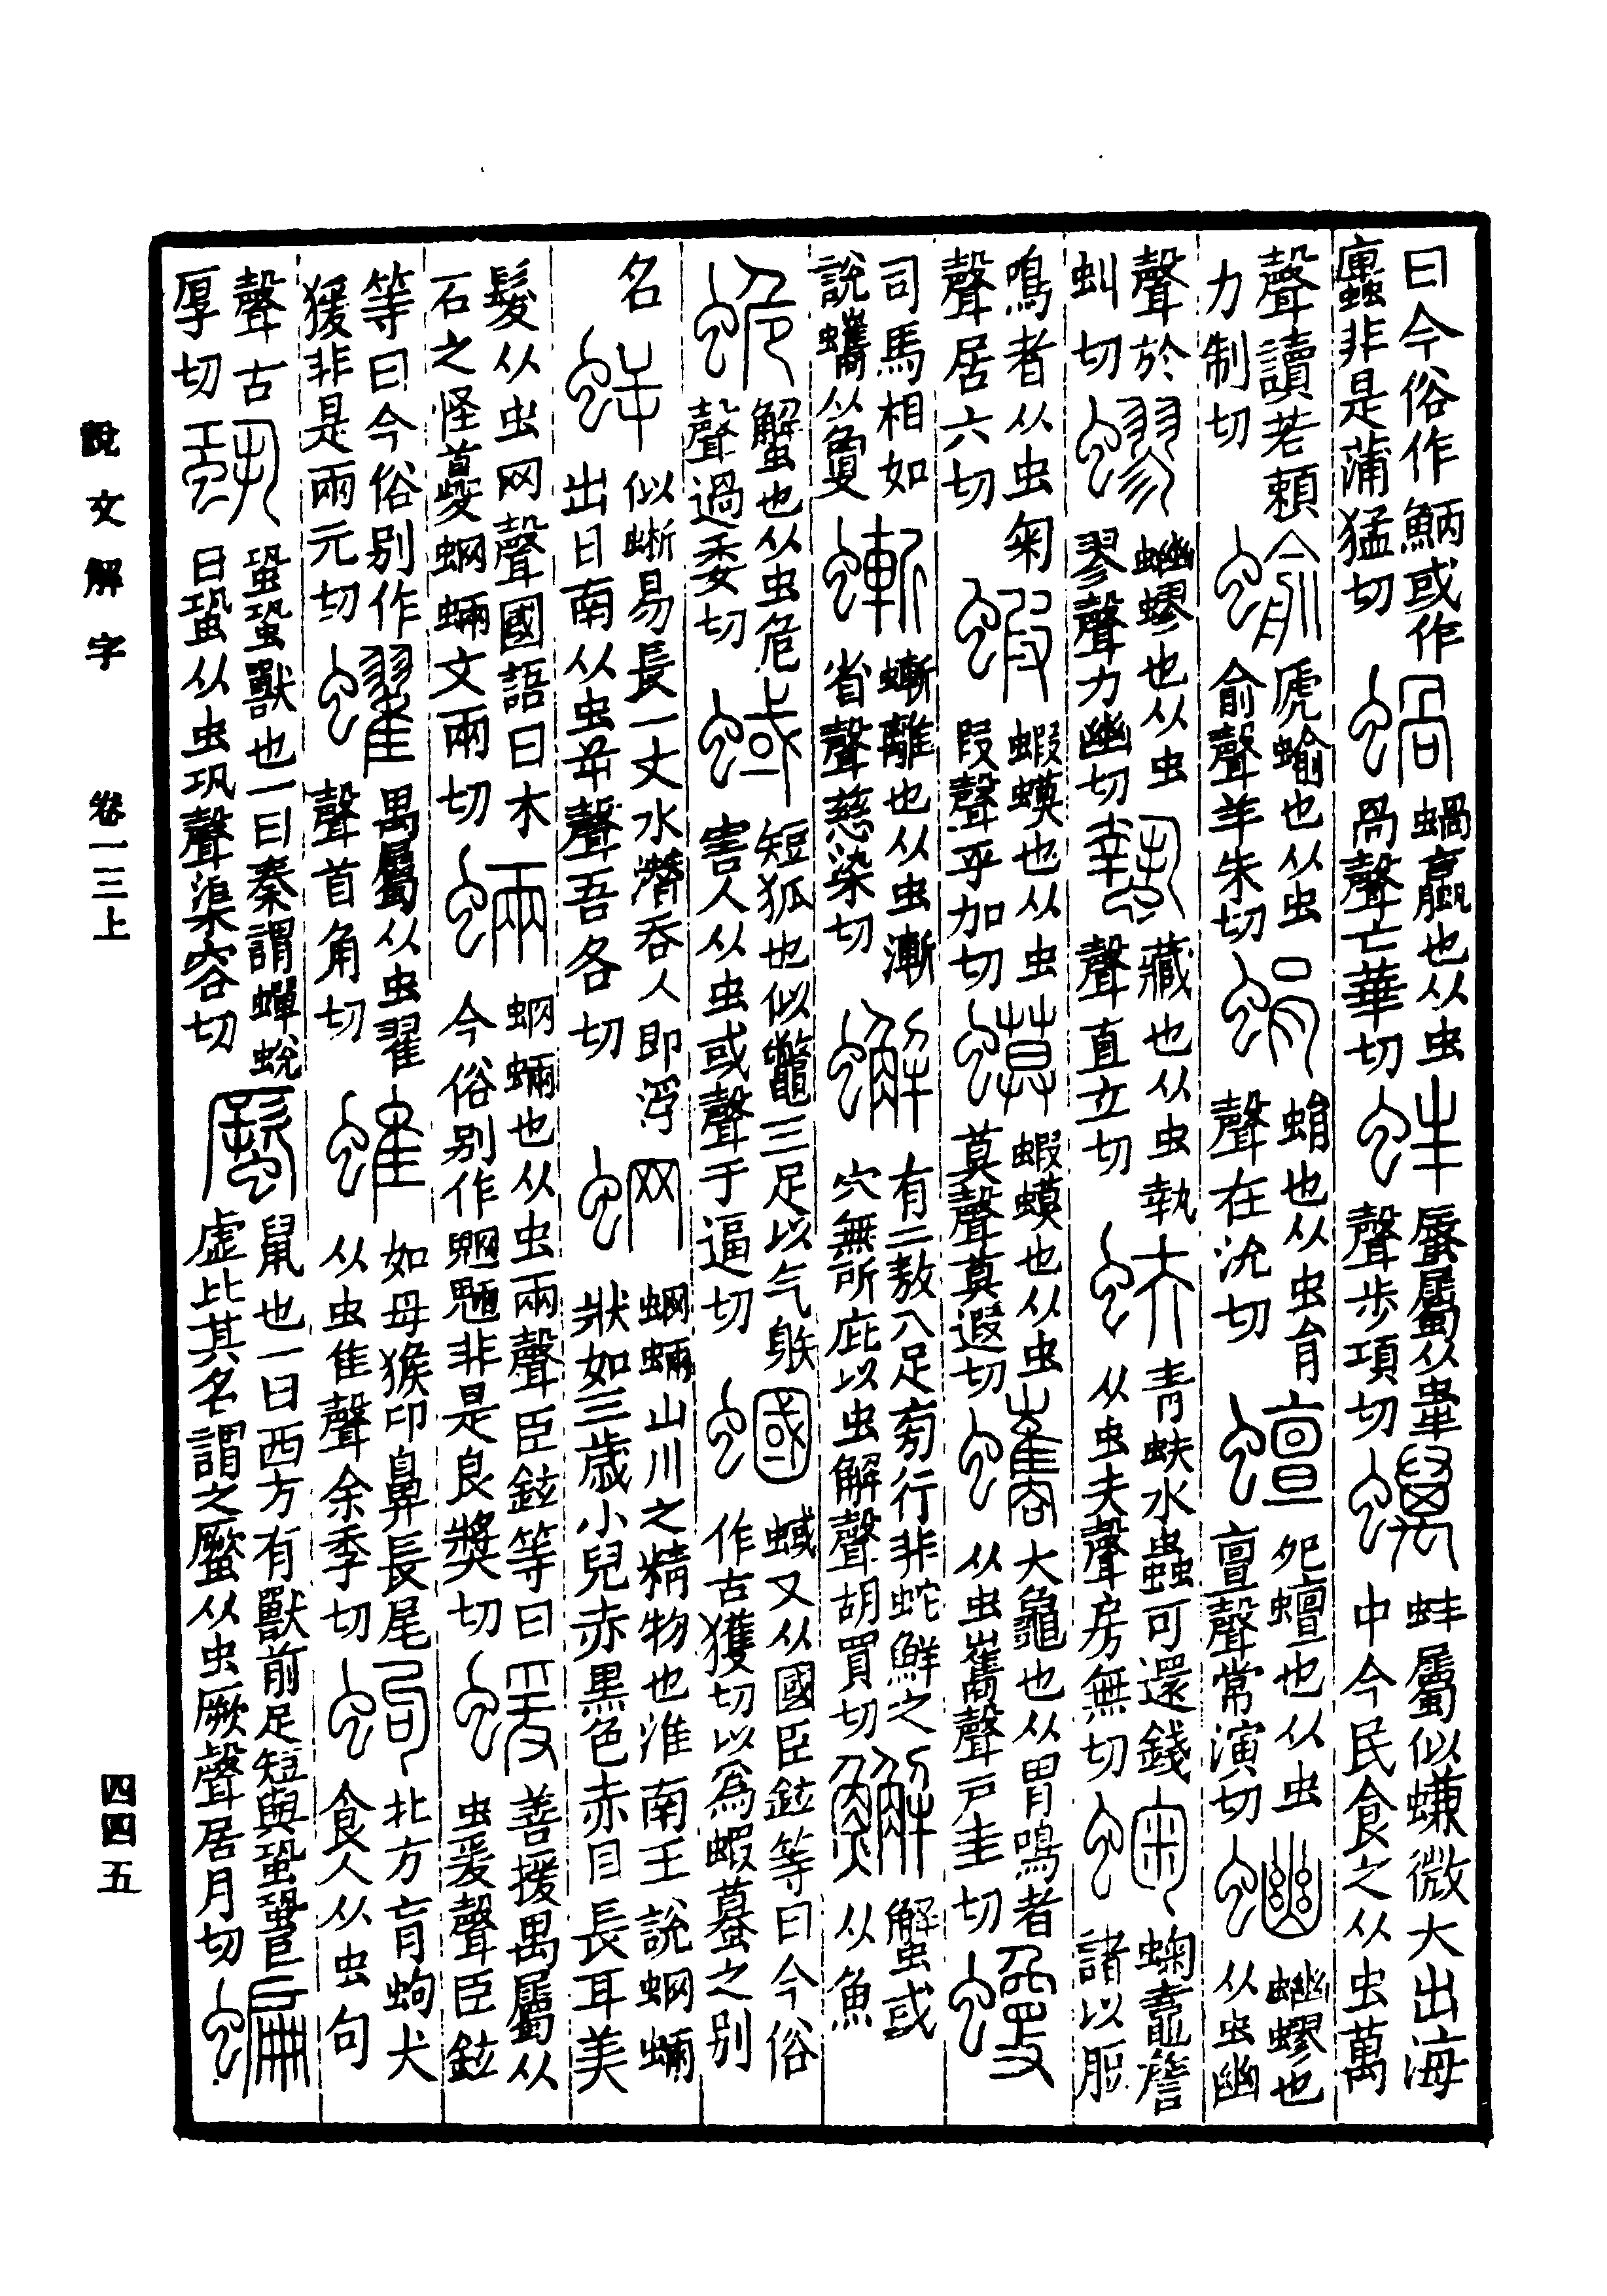 曰今俗作或作非是蒲猛切蝸蝸蠃也从虫咼聲亡華切蚌蜃屬从虫丰聲步項切蠇蚌屬似螊微大出海中今民食之从虫萬
聲讀若賴力制切蝓虒蝓也从虫俞聲羊朱切蜎蜎也从虫肙聲在沇切蟺夗蟺也从虫亶聲常演切𧖣𧖣蟉也从虫幽
聲於虯切蟉𧖣蟉也从虫翏聲力幽切蟄藏也从虫執聲直立切蚨青蚨水蟲可還錢从虫夫聲房無切䗇䗇鼀詹諸以脰
鳴者从虫匊聲居六切蝦蝦蟆也从虫叚聲乎加切蟆蝦蟆也从虫莫聲莫遐切蠵大龜也以胃鳴者从虫巂聲戶圭切
司馬相如說蠵从敻螹螹離也从虫漸省聲慈染切蠏有二敖八足㫄行非蛇鮮之穴無所庇从虫解聲胡買切𩼤蠏或从魚
蛫蟹也从虫危聲過委切蜮短狐也似鼈三足以气䠶害人从虫或聲于逼切蟈蜮又从國臣鉉等曰今俗作古獲切以爲蝦蟇之別
名𧊜似蜥易長一丈水潛吞人即浮出日南从虫屰聲吾各切蛧蛧蜽山川之精物也淮南王說蛧蜽狀如三歲小兒赤黑色赤目長耳美
髮从虫网聲國語曰木石之怪夔蛧蜽文兩切蜽蛧蜽也从虫兩聲臣鉉等曰今俗別作魍魎非是良獎切蝯善援禺屬从虫爰聲臣鉉
等曰今俗別作猨非是雨元切蠗禺屬从虫翟聲首角切蜼如母猴卬鼻長尾从虫隹聲余季切蚼北方有蚼犬食人从虫句
聲古厚切蛩蛩蛩獸也一曰秦謂蟬蛻曰蛩从虫巩聲渠容切蟨鼠也一曰西方有獸前足短與蛩蛩巨虛比其名謂之蟨从虫厥聲居月切蝙
說文解字 卷一三上 四四五